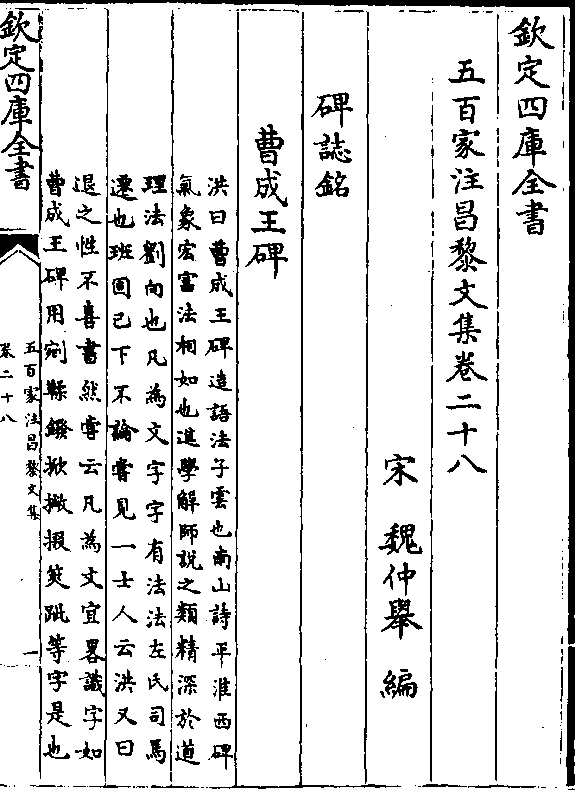 欽定四庫全書
五百家注昌黎文集卷二十八
宋 魏仲舉 編
碑誌銘
曹成王碑
洪曰曹成王碑造語法子雲也南山詩平淮西碑
氣象宏富法相如也進學解師說之類精深於道
理法劉向也凡為文字字有法法左氏司馬
遷也班固已下不論嘗見一士人云洪又曰
退之性不喜書然嘗云凡為文宜畧識字如
曹成王碑用剜鞣鏺掀撇掇筴跐等字是也
欽定四庫全書
五百家注昌黎文集
卷二十八
一